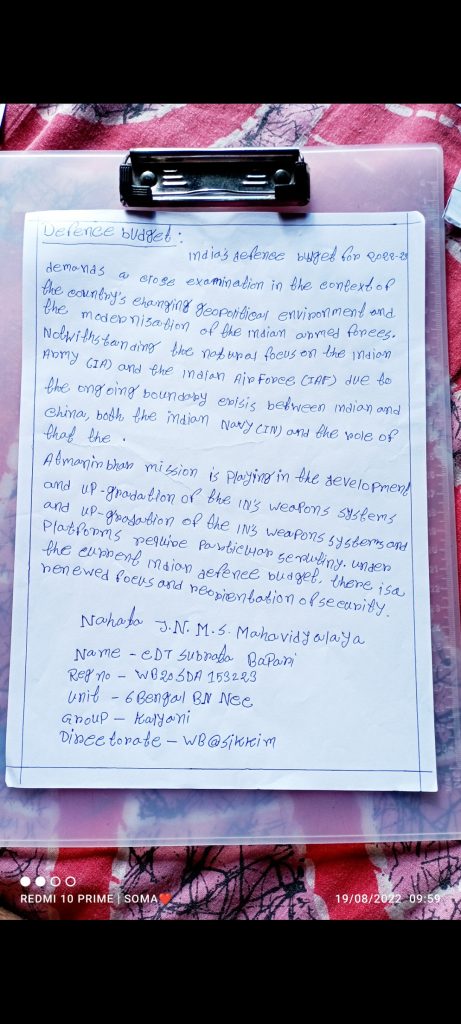 Defence budget:
India's defence budget for 2022-23
demands a close examination in the context of
the country's changing geopolitical environment and
the modernisation of the indian armed forces.
Notwithstanding the natural focus on the indian
Army (IA) and the indian Air Force (IAF) due to
the ongoing boundary crisis between indian and
china, both the indian Navy (IN) and the role of
that the .
Atmanirbhar mission is playing in the development
and up-gradation of the IN's weapons systems
and up-gradation of the IN's weapons systems and
Platforms require particular scrutiny. under
the current indian defence budget, there is a
renewed focus and reorientation of security.
Nahata J.N.M.S. Mahavidyalaya
Name - CDT Subrata Bapari
Reg no - WB20SDA 153223
Unit - 6 Bengal BN Ncc
Group - Kalyani
Directorate - WB@Sikkim
REDMI 10 PRIME | SOMA❤️
19/08/2022 09:59